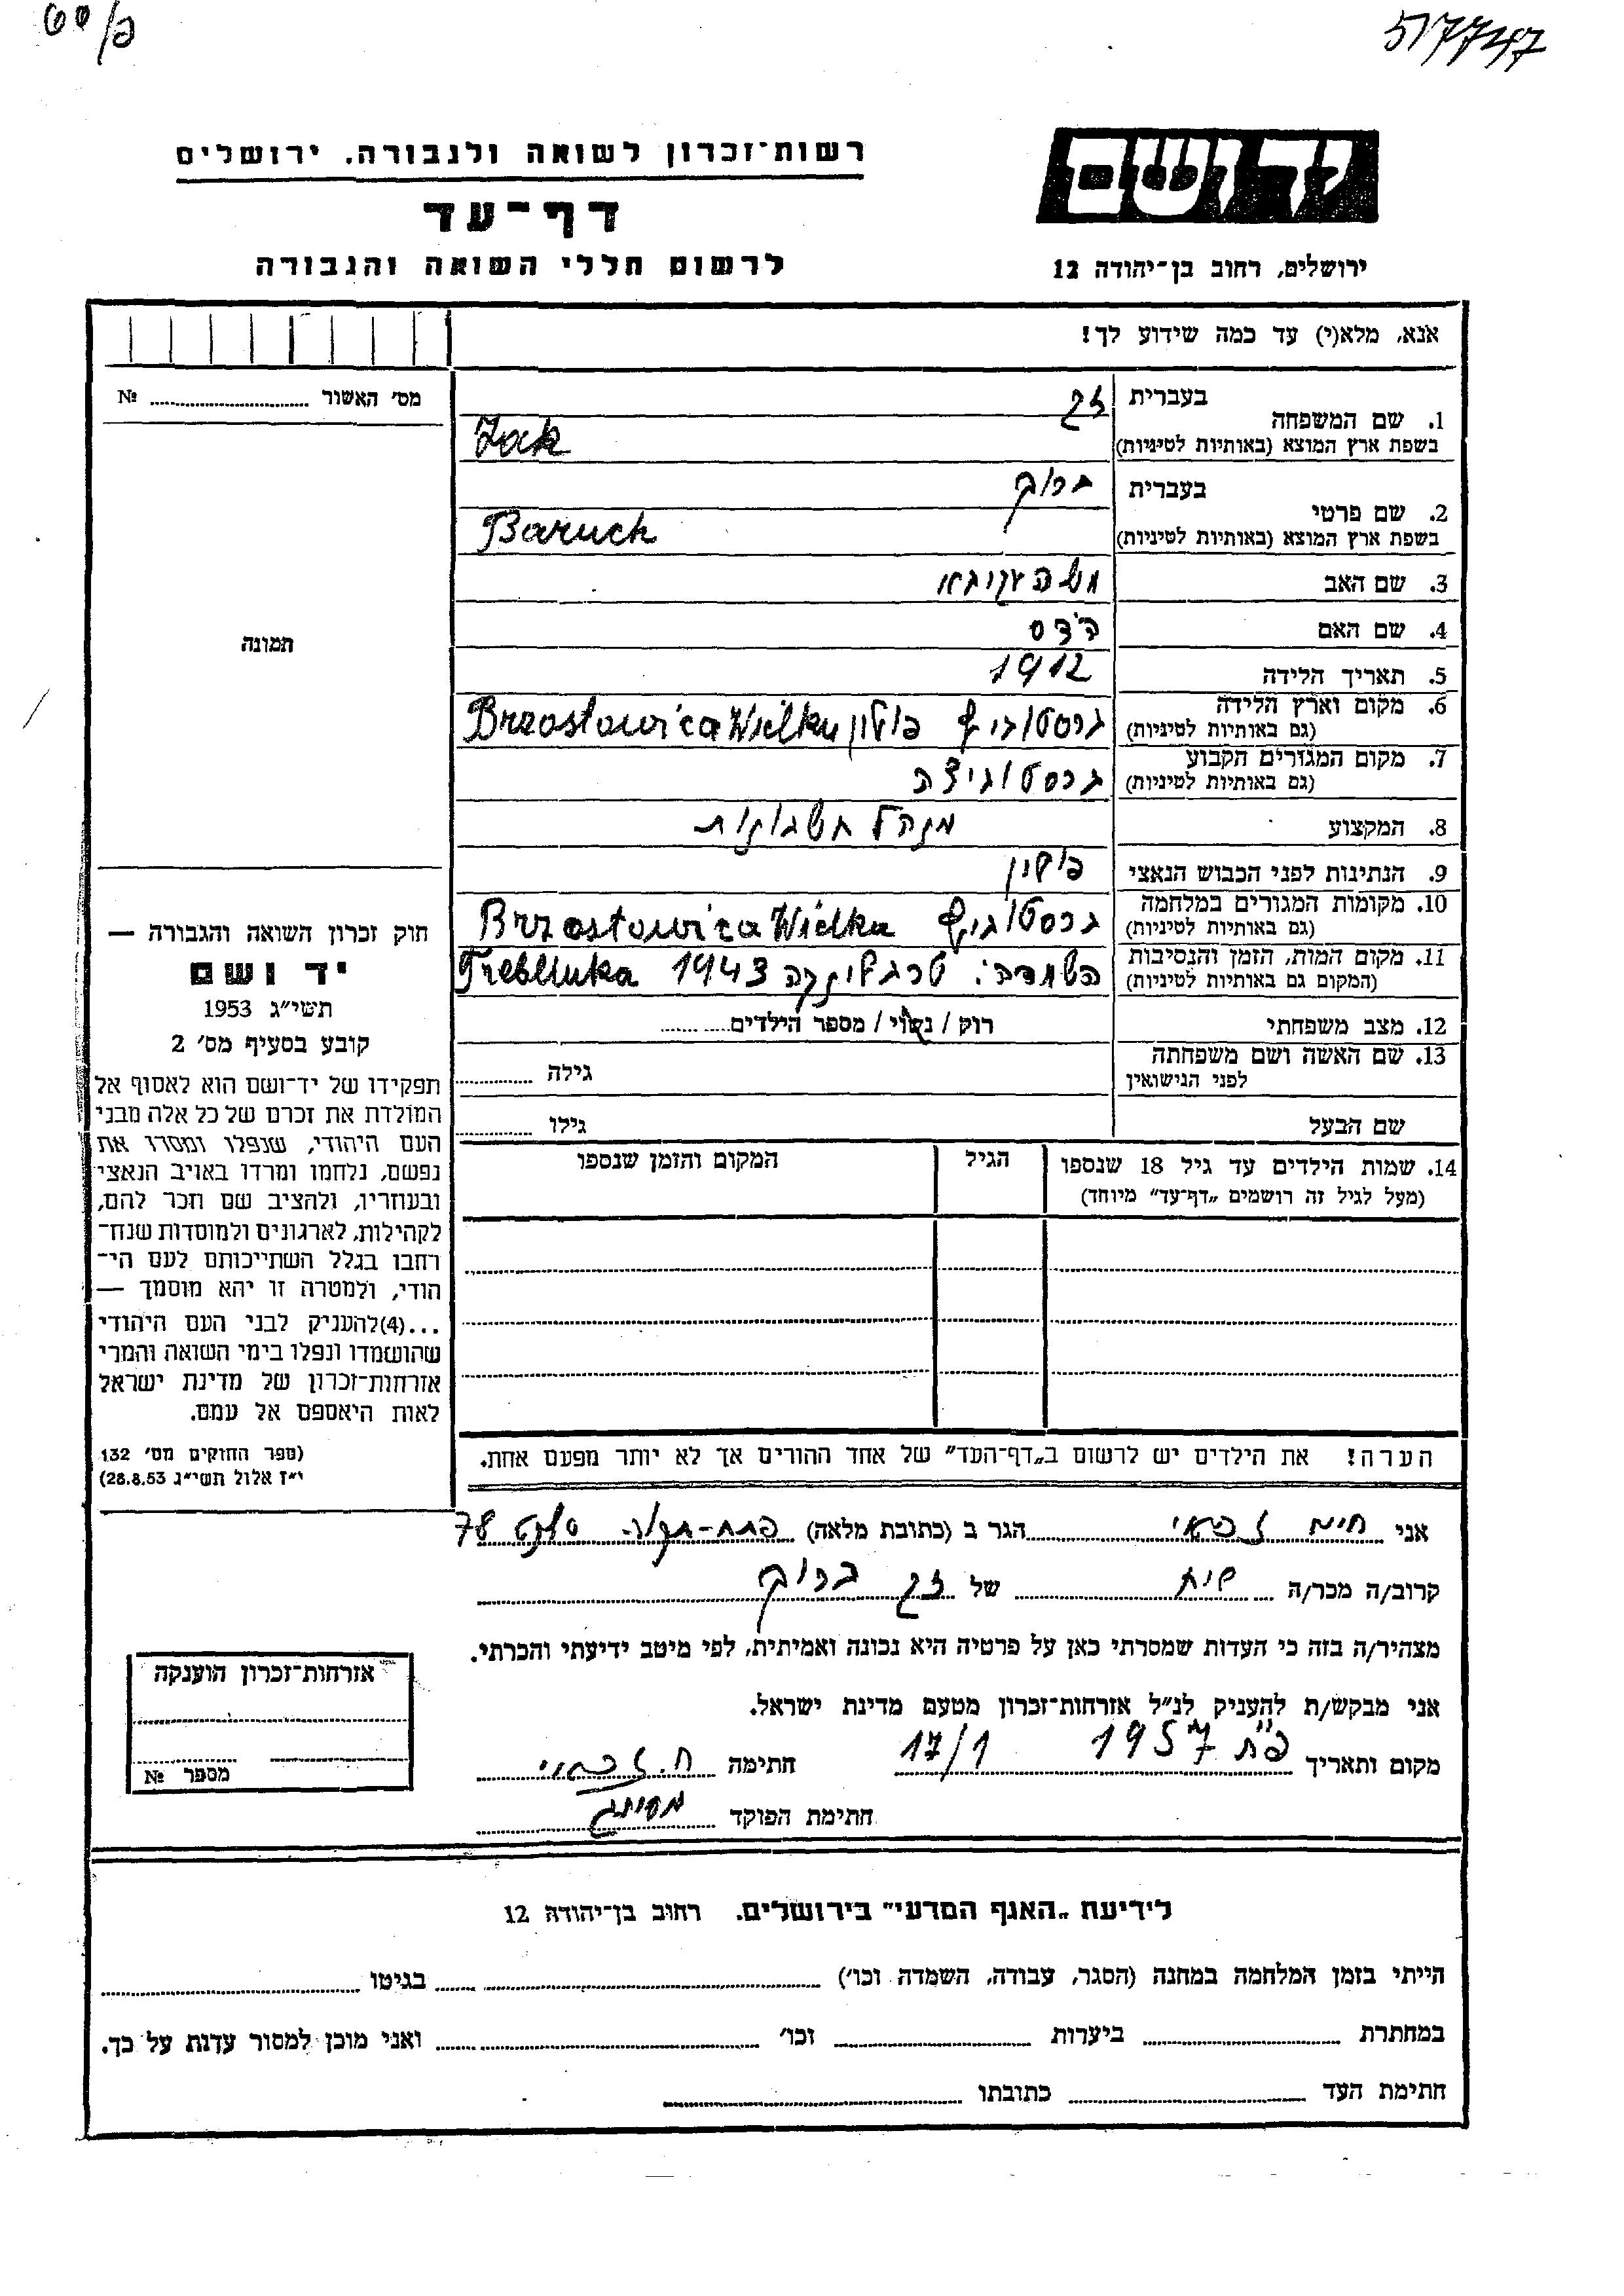 פ/סט
517747
רשות־זכרון לשואה ולגבורה, ירושלים
יד ושם
דף־עד
לרשום חללי השואה והגבורה
ירושלים, רחוב בן־יהודה 12
אנא, מלא(י) עד כמה שידוע לך!
מס׳ האשור № ..........
1. שם המשפחה
בעברית זק
בשפת ארץ המוצא (באותיות לטיניות) Zak
2. שם פרטי
בעברית ברוך
בשפת ארץ המוצא (באותיות לטיניות) Baruch
3. שם האב משה עקיבא
4. שם האם הדס
5. תאריך הלידה 1912
6. מקום וארץ הלידה
(גם באותיות לטיניות) פולין Brzostowica Wielka
7. מקום המגורים הקבוע
(גם באותיות לטיניות) ברסטוביצה
8. המקצוע מנהל חשבונות
9. הנתינות לפני הכבוש הנאצי פולין
10. מקומות המגורים במלחמה
(גם באותיות לטיניות) Brzostowica Wielka
11. מקום המות, הזמן והנסיבות
(המקום גם באותיות לטיניות) השמדה: טרבלינקה 1943 Treblinka
12. מצב משפחתי רוק / נשוי / מספר הילדים..........
13. שם האשה ושם משפחתה
לפני הנישואין גילה ..........
שם הבעל גילו ..........
14. שמות הילדים עד גיל 18 שנספו
(מעל לגיל זה רושמים „דף־עד” מיוחד)
הגיל
המקום והזמן שנספו
הערה! את הילדים יש לרשום ב„דף־העד” של אחד ההורים אך לא יותר מפעם אחת.
תמונה
חוק זכרון השואה והגבורה —
יד ושם
תשי״ג 1953
קובע בסעיף מס׳ 2
תפקידו של יד־ושם הוא לאסוף אל
המולדת את זכרם של כל אלה מבני
העם היהודי, שנפלו ומסרו את
נפשם, נלחמו ומרדו באויב הנאצי
ובעוזריו, ולהציב שם וזכר להם,
לקהילות, לארגונים ולמוסדות שנח־
רחבו בגלל השתייכותם לעם הי־
הודי, ולמטרה זו יהא מוסמך —
...(4)להעניק לבני העם היהודי
שהושמדו ונפלו בימי השואה והמרי
אזרחות־זכרון של מדינת ישראל
לאות היאספם אל עמם.
(ספר החוקים מס׳ 132
י״ז אלול תשי״ג 28.8.53)
אני חיים זכאי הגר ב (כתובת מלאה) פתח-תקוה 78
קרוב/ה מכר/ה של זק ברוך
מצהיר/ה בזה כי העדות שמסרתי כאן על פרטיה היא נכונה ואמיתית, לפי מיטב ידיעתי והכרתי.
אני מבקש/ת להעניק לנ״ל אזרחות־זכרון מטעם מדינת ישראל.
מקום ותאריך פ״ת 1957 17/1 חתימה ח. זכאי
חתימת הפוקד
אזרחות־זכרון הוענקה
מספר №
לידיעת „האגף המדעי” בירושלים, רחוב בן־יהודה 12
הייתי בזמן המלחמה במחנה (הסגר, עבודה, השמדה וכו׳) .......... בגיטו ..........
במחתרת .......... ביערות .......... וכו׳ .......... ואני מוכן למסור עדות על כך.
חתימת העד .......... כתובתו ..........